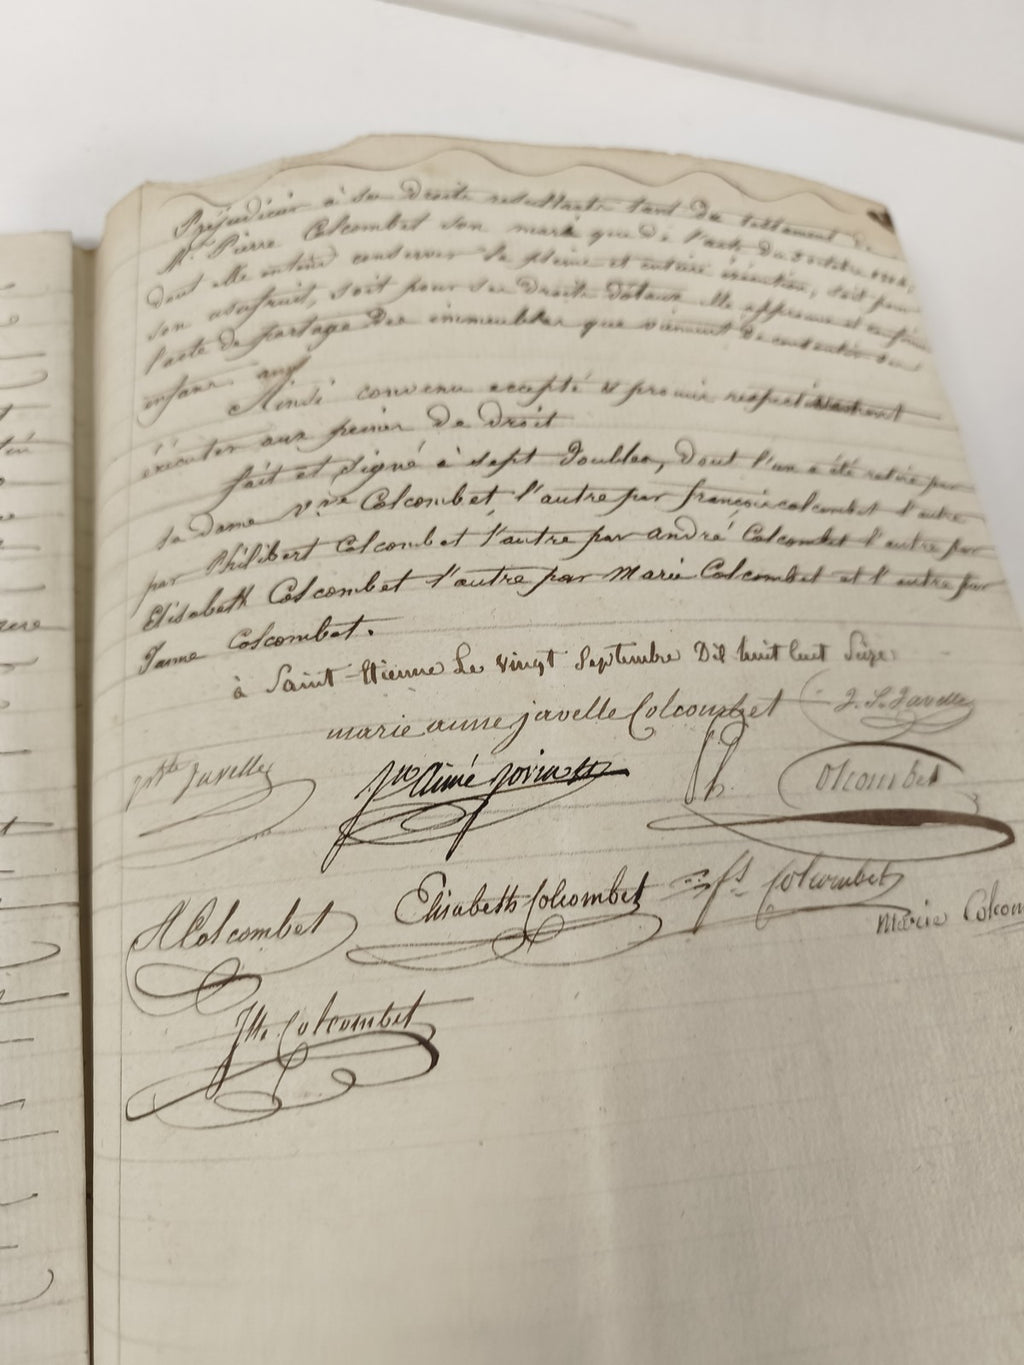 Préjudicier à ses droits résultants tant du testament de
Mr. Pierre Colcombet son mari que de l'acte du 3 octobre
dont elle entend conserver la pleine et entière exécution, soit pour
son usufruit, soit pour ses droits dotaux elle approuve et confirme
l'acte de partage des immeubles que viennent de consentir ses
enfans
Ainsi convenu accepté et promis respectivement
exécuter aux peines de droit
fait et signé à sept doubles, dont l'un a été retiré par
la dame vve Colcombet, l'autre par françois colcombet l'autre
par Philibert Colcombet l'autre par andré Colcombet l'autre par
Elisabeth Colcombet l'autre par Marie Colcombet et l'autre par
Colcombet.
à Saint-Etienne Le vingt Septembre Dil huit Cent Sèize
marie anne javelle Colcombet
J. S. Javelle
Javelle
Aimé
Ph. Colcombet
A Colcombet
Elisabeth Colcombet
fs Colcombet
Marie Colcom
Colcombet